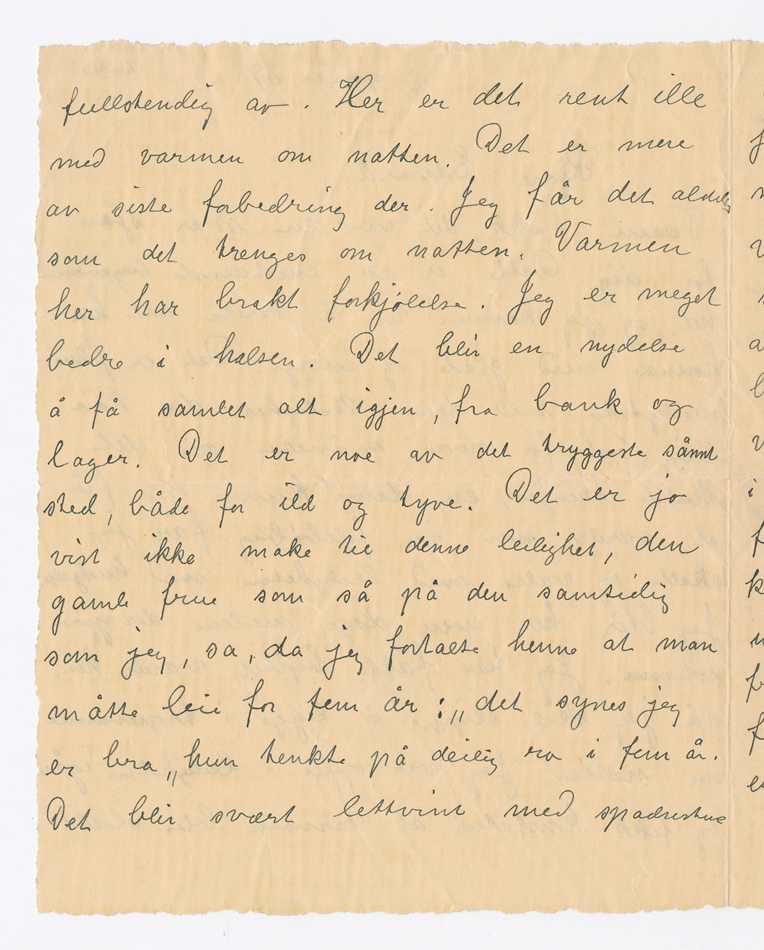 fullstendig av. Her er det rent ille
med varmen om natten. Det er mere
av siste forbedring der. Jeg får det aldeles
som det trenges om natten. Varmen
her har brakt forkjølelse. Jeg er meget
bedre i halsen. Det blir en nydelse
å få samlet alt igjen, fra bank og
lager. Det er noe av det tryggeste sånnt
sted, både for ild og tyve. Det er jo
visst ikke make til denne leilighet, den
gamle frue som så på den samtidig
som jeg, sa, da jeg fortalte henne at man
måtte leie for fem år: „det synes jeg
er bra„ hun tenkte på deilig ro i fem år.
Det blir svært lettvint med